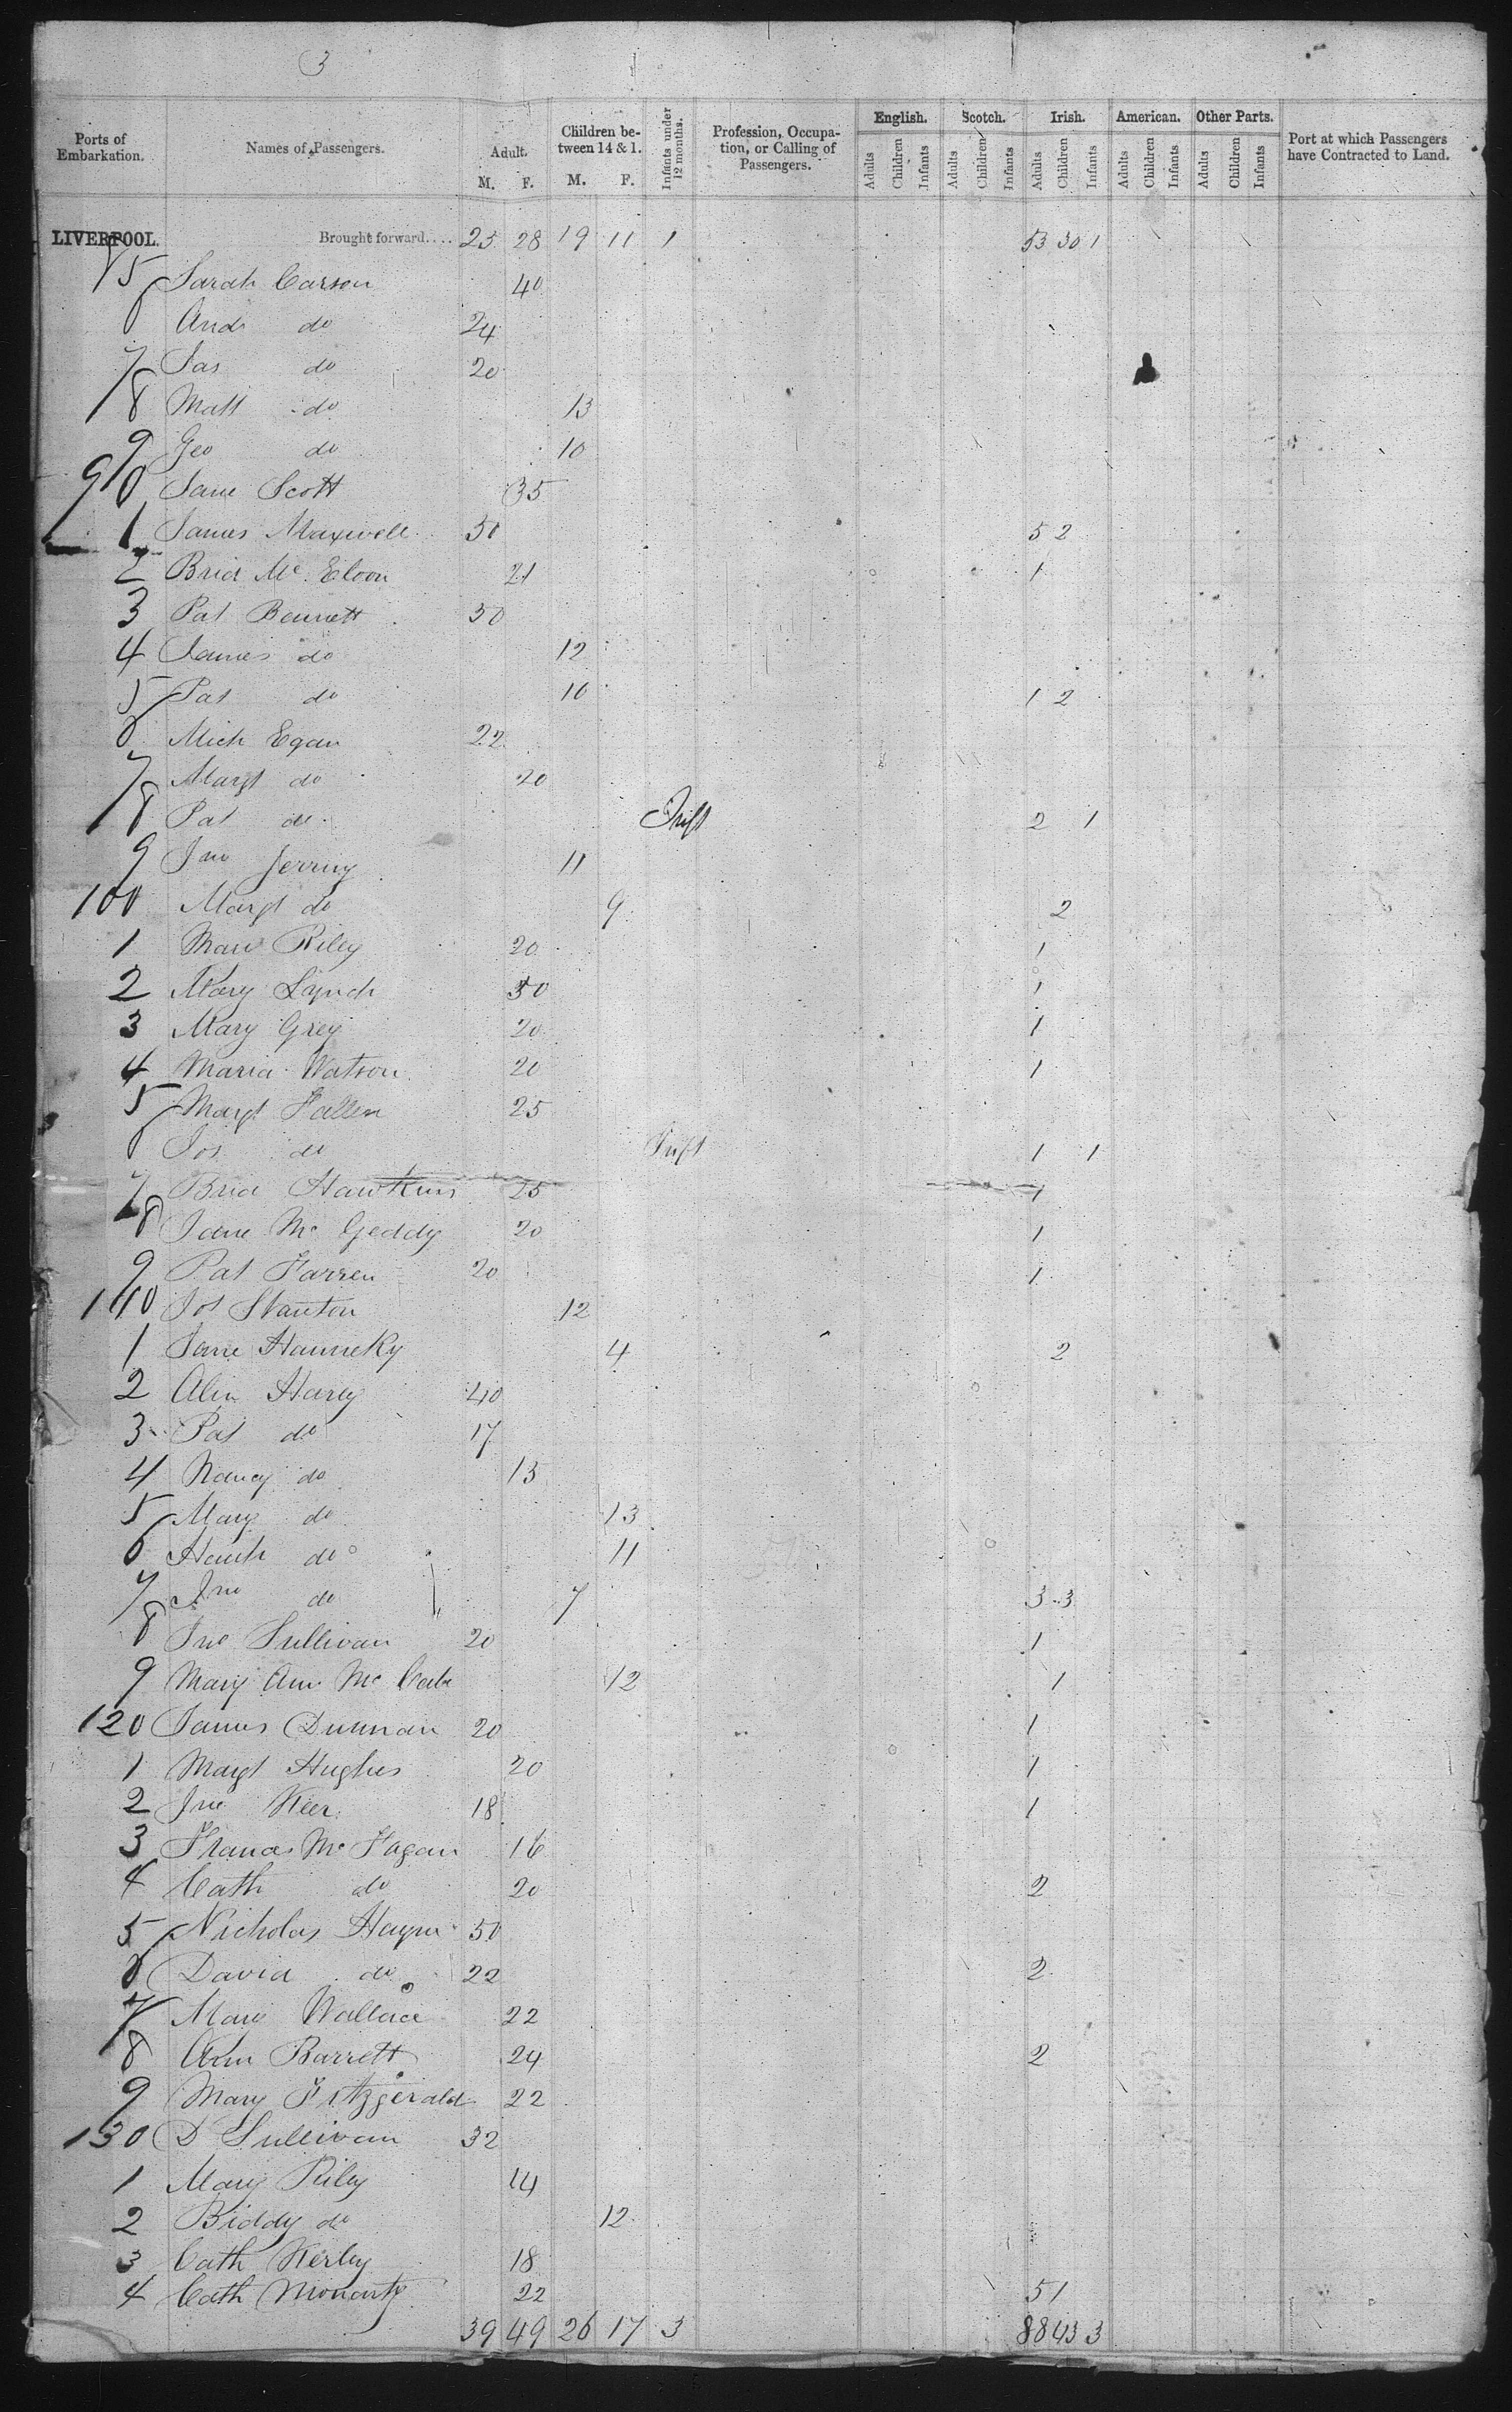 3
Ports of Embarkation. Names of Passengers. Adult. M. F. Children between 14 & 1. M. F. Infants under 12 months. Profession, Occupation, or Calling of Passengers. English. Adults Children Infants Scotch. Adults Children Infants Irish. Adults Children Infants American. Adults Children Infants Other Parts. Adults Children Infants Port at which Passengers have Contracted to Land.
LIVERPOOL. Brought forward.... 25 28 19 11 1 53 30 1
5 Sarah Carson 40
6 And do 24
7 Jas do 20
8 Matt do 13
9 Geo do 10
90 Jane Scott 35
1 James Maxwell 50 5 2
2 Brid Mc 21 1
3 Pat Bennett 50
4 James do 12
5 Pat do 10 1 2
6 Mich Egan 22
7 Margt do 20
8 Pat do Inft 2 1
9 Jno 11
100 Margt do 9 2
1 Mary Riley 20 1
2 Mary Lynch 30 1
3 Mary Grey 20 1
4 Maria Watson 20 1
5 Margt Fallen 25
6 Jos do Inft 1 1
7 Brid Hawkins 25 1
8 Jane Mc Geddy 20 1
9 Pat Farren 20 1
110 Jos Stanton 12
1 Jane 4 2
2 40
3 Pat do 17
4 Nancy do 15
5 Mary do 13
6 do 11
7 Jno do 7 3 3
8 Jno Sullivan 20 1
9 Mary Ann Mc Cabe 12 1
120 James 20 1
1 Margt Hughes 20 1
2 Jno Keer 18 1
3 Frances Mc Fagan 16
4 Cath do 20 2
5 Nicholas 50
6 David do 22 2
7 Mary Wallace 22
8 Ann Barrett 24 2
9 Mary Fitzgerald 22
130 D Sullivan 32
1 Mary Riley 14
2 Biddy do 12
3 Cath Kerley 18
4 Cath Moriarty 22 5 1
39 49 26 17 3 88 43 3